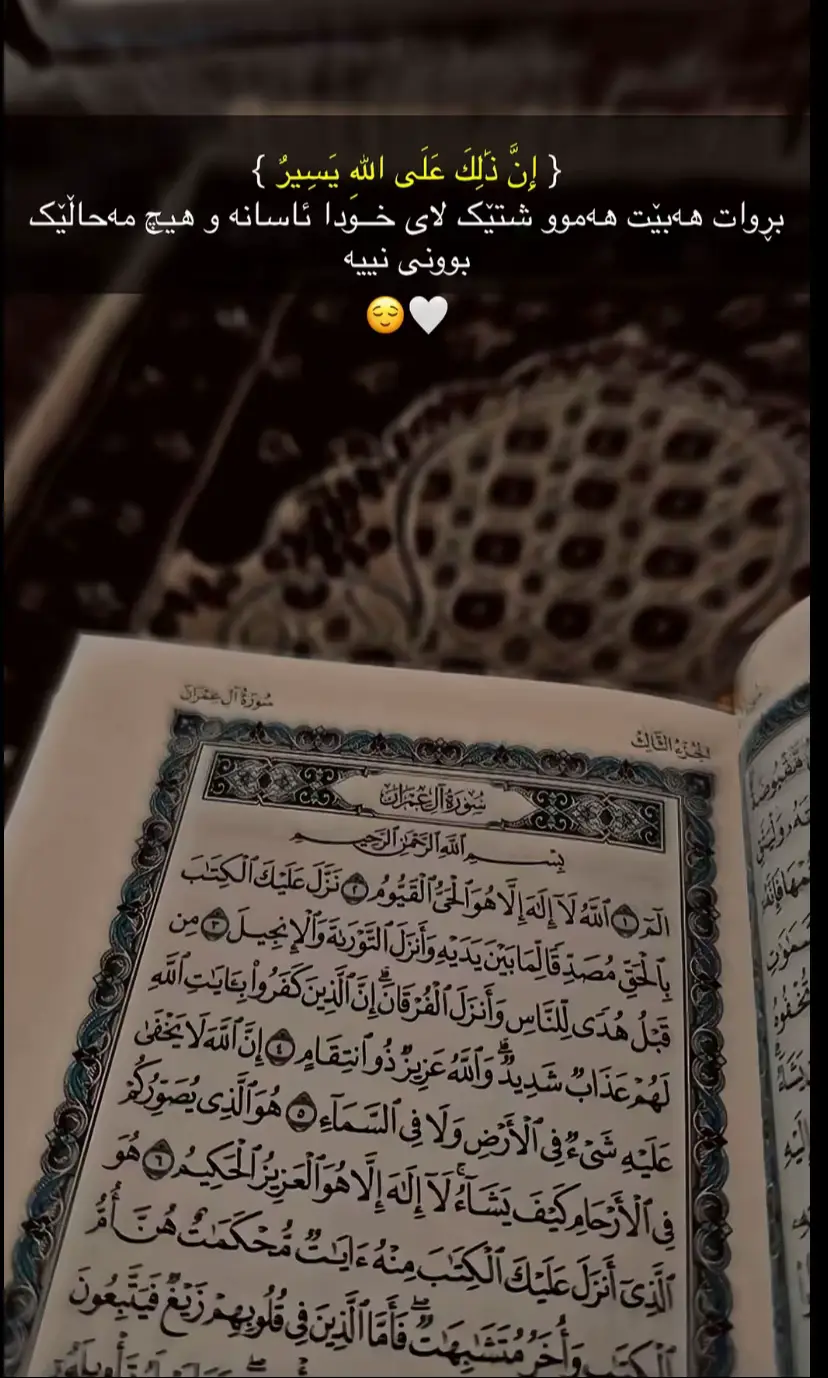 { إِنَّ ذَٰلِكَ عَلَى اللهِ يَسِيرٌ }
بڕوات هەبێت هەموو شتێک لای خـــودا ئاسانە و هیچ مەحاڵێک
بوونی نییە
😌🤍
سُورَةُ آلِ عِمْرَانَ
الجُزءُ الثَّالِثُ
سُورَةُ آلِ عِمْرَانَ
بِسْمِ ٱللَّهِ ٱلرَّحْمَٰنِ ٱلرَّحِيمِ
الٓمٓ ١ ٱللَّهُ لَآ إِلَٰهَ إِلَّا هُوَ ٱلْحَىُّ ٱلْقَيُّومُ ٢ نَزَّلَ عَلَيْكَ ٱلْكِتَٰبَ
بِٱلْحَقِّ مُصَدِّقًا لِّمَا بَيْنَ يَدَيْهِ وَأَنزَلَ ٱلتَّوْرَىٰةَ وَٱلْإِنجِيلَ ٣ مِن
قَبْلُ هُدًى لِّلنَّاسِ وَأَنزَلَ ٱلْفُرْقَانَ ۗ إِنَّ ٱلَّذِينَ كَفَرُوا۟ بِـَٔايَٰتِ ٱللَّهِ
لَهُمْ عَذَابٌ شَدِيدٌ ۗ وَٱللَّهُ عَزِيزٌ ذُو ٱنتِقَامٍ ٤ إِنَّ ٱللَّهَ لَا يَخْفَىٰ
عَلَيْهِ شَىْءٌ فِى ٱلْأَرْضِ وَلَا فِى ٱلسَّمَآءِ ٥ هُوَ ٱلَّذِى يُصَوِّرُكُمْ
فِى ٱلْأَرْحَامِ كَيْفَ يَشَآءُ ۚ لَآ إِلَٰهَ إِلَّا هُوَ ٱلْعَزِيزُ ٱلْحَكِيمُ ٦ هُوَ
ٱلَّذِىٓ أَنزَلَ عَلَيْكَ ٱلْكِتَٰبَ مِنْهُ ءَايَٰتٌ مُّحْكَمَٰتٌ هُنَّ أُمُّ
ٱلْكِتَٰبِ وَأُخَرُ مُتَشَٰبِهَٰتٌ ۖ فَأَمَّا ٱلَّذِينَ فِى قُلُوبِهِمْ زَيْغٌ فَيَتَّبِعُونَ